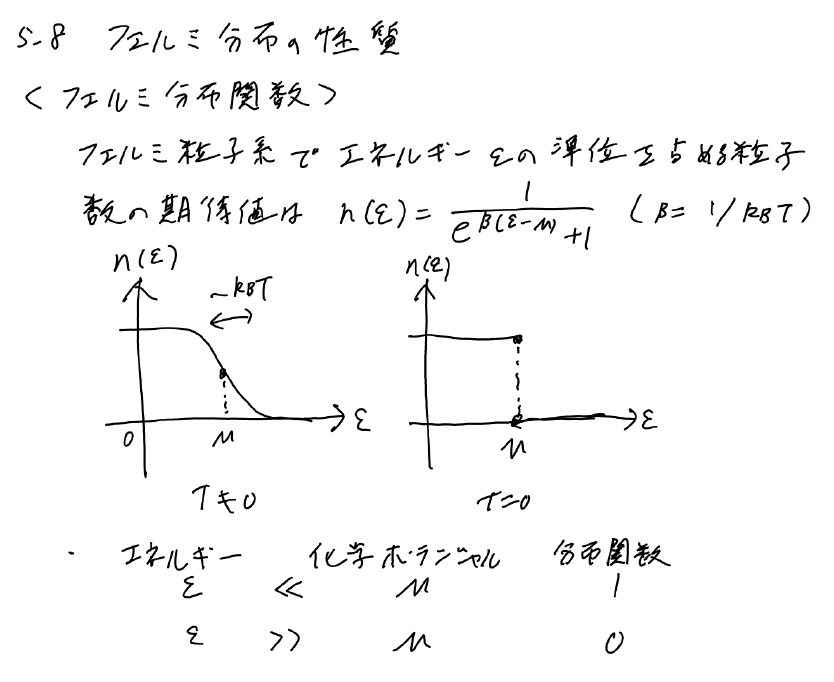 5-8 フェルミ分布の性質
<フェルミ分布関数>
フェルミ粒子系でエネルギーεの準位を占める粒子
数の期待値は n(ε) = 1/(e^{β(ε-μ)}+1) (β = 1/kBT)
n(ε) n(ε)
~kBT
ε ε
0 μ μ
T≠0 T=0
・ エネルギー 化学ポテンシャル 分布関数
ε << μ 1
ε >> μ 0